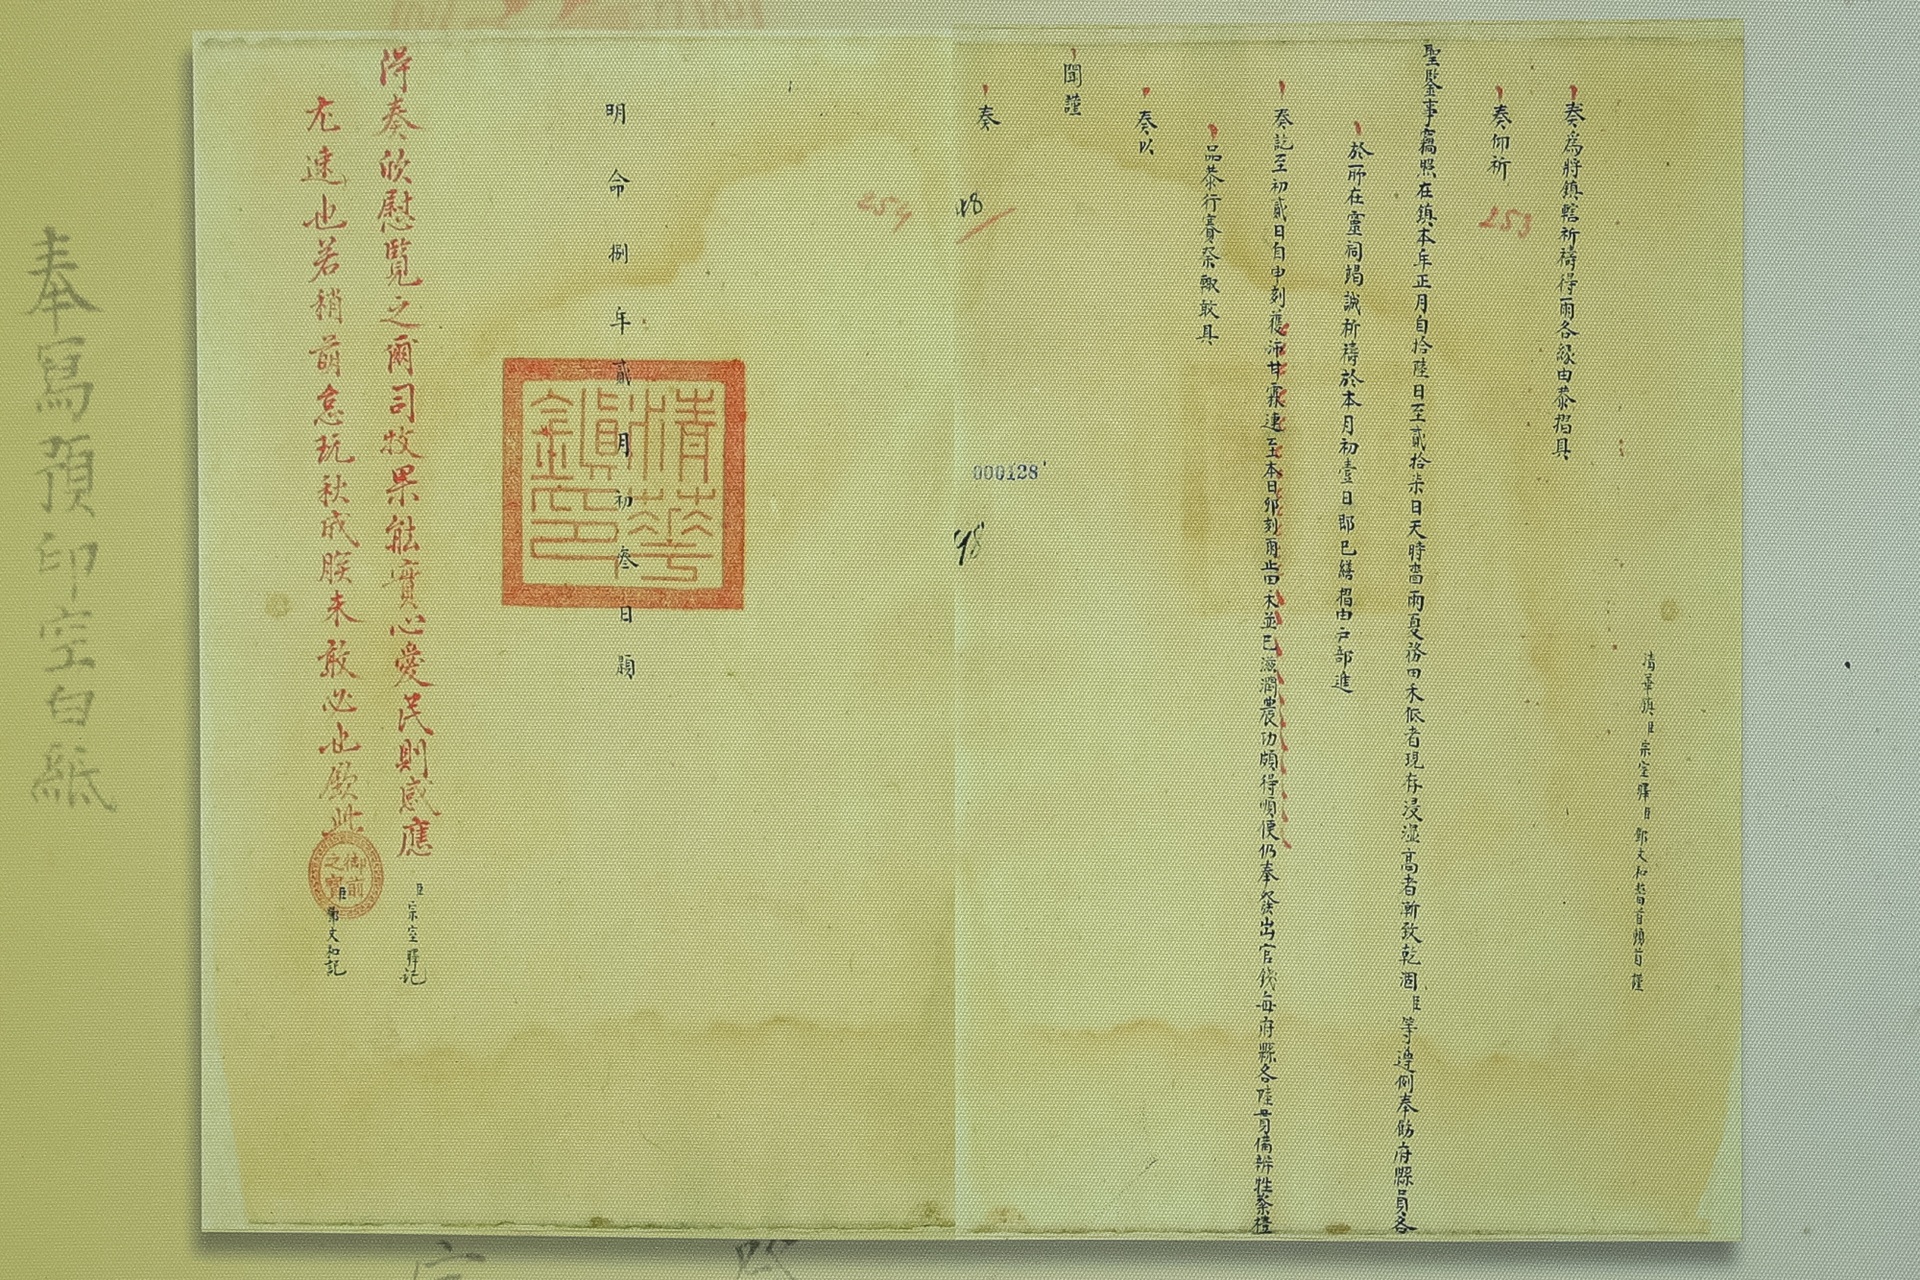 清華鎮臣宗室驛臣鄧文和稽首頓首謹
奏為將鎮轄祈禱得雨各緣由恭摺具
奏仰祈
聖鑒事竊照在鎮本年正月自拾陸日至貳拾柒日天時嗇雨夏務田禾低者現存浸濕高者漸致乾涸臣等遵例奉飭府縣員各
於所在靈祠竭誠祈禱於本月初壹日即已繕摺由戶部進
奏訖至初貳日自申刻獲沛甘霖連至本日卯刻雨止田禾並已滋潤農功頗得順便仍奉發出官錢每府縣各陸貫備辦牲粢禮
品恭行賽祭輒敢具
奏以
聞謹
奏
253
254
48
000128
98
明命捌年貳月初叁日題
清華鎮印
得奏欣慰覽之爾司牧果能實心愛民則感應
尤速也若稍萌怠玩秋成朕未敢必也欽此
御前之寶
臣宗室驛記
臣鄧文和記
奉寫預印空白紙